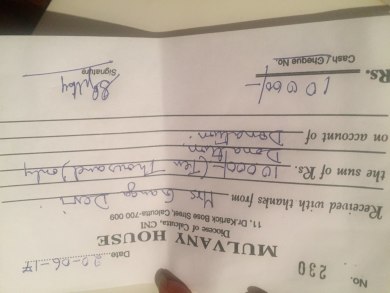 No. 230
MULVANY HOUSE
Diocese of Calcutta, CNI
11, Dr. Kartick Bose Street, Calcutta-700 009
Date 22-06-17
Received with thanks from Mrs Ganga Devi
the sum of Rs. 10,000/- (Ten Thousand) only
Donation
on account of Donation
Rs. 10000/-
Cash / Cheque No.
Signature